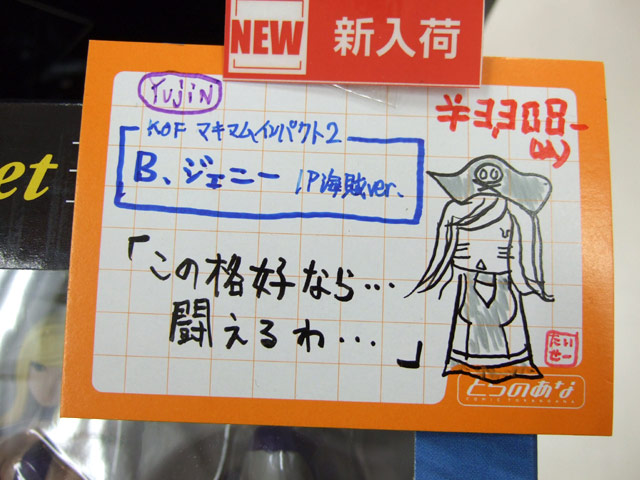 NEW 新入荷
Yujin
¥3,308-
KOF マキマムインパクト2
B.ジェニー 1P海賊ver.
「この格好なら…
闘えるわ…」
たいせー
とらのあな
COMIC TORANOANA
et